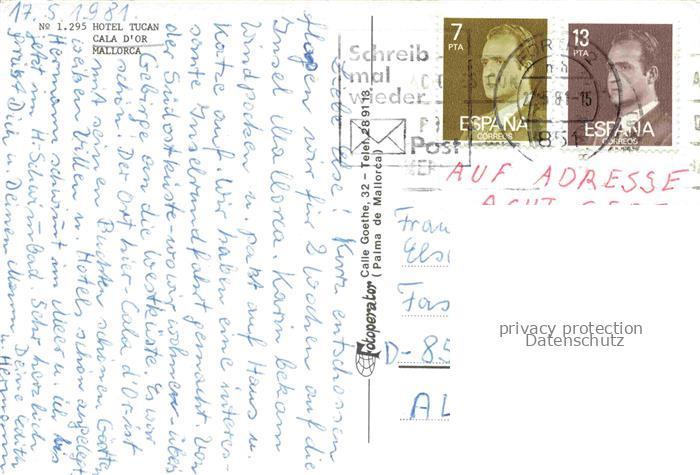 17.5.1981.
Nº 1.295 HOTEL TUCAN
CALA D'OR
MALLORCA
Liebe Else! Kurz entschlossen
flogen wir für 2 Wochen auf die
Insel Mallorca. Karin bekam
Windpocken u. passt auf Haus u.
Katze auf. Wir haben eine interes-
sante Inselrundfahrt gemacht. Von
der Südostküste - wo wir wohnen - über
Gebirge an die Westküste. Es war
schön! Der Ort hier - Cala d'Or ist
mit seinen Buchten schön
weißen Villen u. Hotels schön angelegt
Hermann schwimmt im Meer u. ich bis
jetzt im H-Schwimmbad. Sehr herzlich
grüßt Dich u. Deinen Mann Deine Edith
u. Hermann
Fotoperator Calle Goethe, 32 - Telef. 28 91 18
(Palma de Mallorca)
Schreib
mal
wieder
Post
7
PTA
ESPAÑA
CORREOS
13
PTA
ESPAÑA
CORREOS
AUF ADRESSE
Frau
D-85
AL
privacy protection
Datenschutz